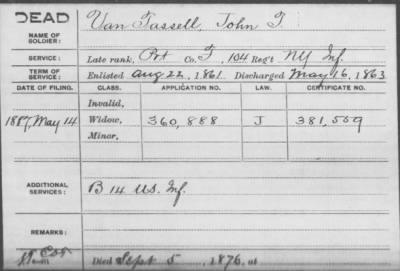 DEAD
NAME OF SOLDIER: Van Tassell, John T.
SERVICE: Late rank, Prt Co. F, 104 Reg't NY Inf.
TERM OF SERVICE: Enlisted Aug 22, 1861. Discharged May 16, 1863
DATE OF FILING. CLASS. APPLICATION NO. LAW. CERTIFICATE NO.
Invalid,
1887, May 14 Widow, 360,888 J 381,559
Minor,
ADDITIONAL SERVICES: B 14 US. Inf.
REMARKS:
Died Sept 5, 1876, at